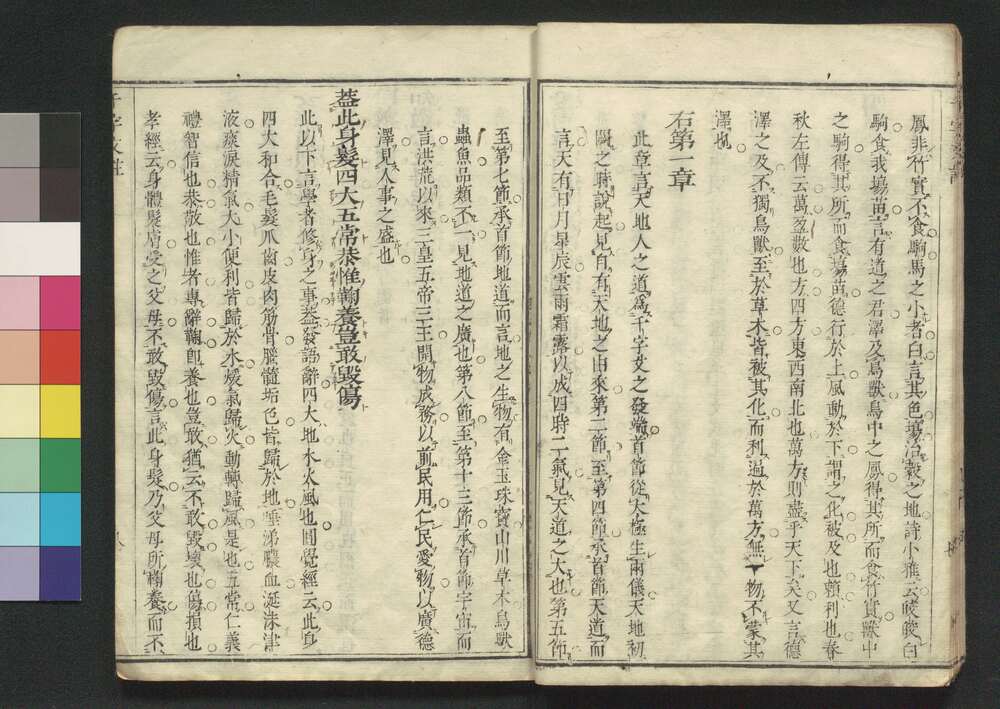 鳳非竹實不食駒馬之小者白言其色場治穀之地詩小雅云皎皎白
駒食我場苗言有道之君澤及鳥獸鳥中之鳳得其所而食竹實獸中
之駒得其所而食場苗德行於上風動於下謂之化被及也賴利也春
秋左傳云萬盈數也方四方東西南北也萬方則盡乎天下矣又言德
澤之及不獨鳥獸至於草木皆被其化而利過於萬方無一物不蒙其
澤也
右第一章
此章言天地人之道爲千字文之發端首節從太極生兩儀天地初
闢之時說起見自有天地之由來第二節至第四節承首節天道而
言天有日月星辰雲雨霜露以成四時二氣見天道之大也第五節
至第七節承首節地道而言地之生物有金玉珠寶山川草木鳥獸
蟲魚品類不一見地道之廣也第八節至第十三節承首節宇宙而
言洪荒以來三皇五帝三王開物成務以前民用仁民愛物以廣德
澤見人事之盛也
葢此身髮四大五常恭惟鞠養豈敢毀傷
此以下言學者修身之事葢發語辭四大地水火風也圓覺經云此身
四大和合毛髮爪齒皮肉筋骨腦髓垢色皆歸於地唾涕膿血涎沫津
液痰淚精氣大小便利皆歸於水煖氣歸火動轉歸風是也五常仁義
禮智信也恭敬也惟者專辭鞠卽養也豈敢猶云不敢毀壞也傷損也
孝經云身體髮膚受之父母不敢毀傷言此身髮乃父母所鞠養而不